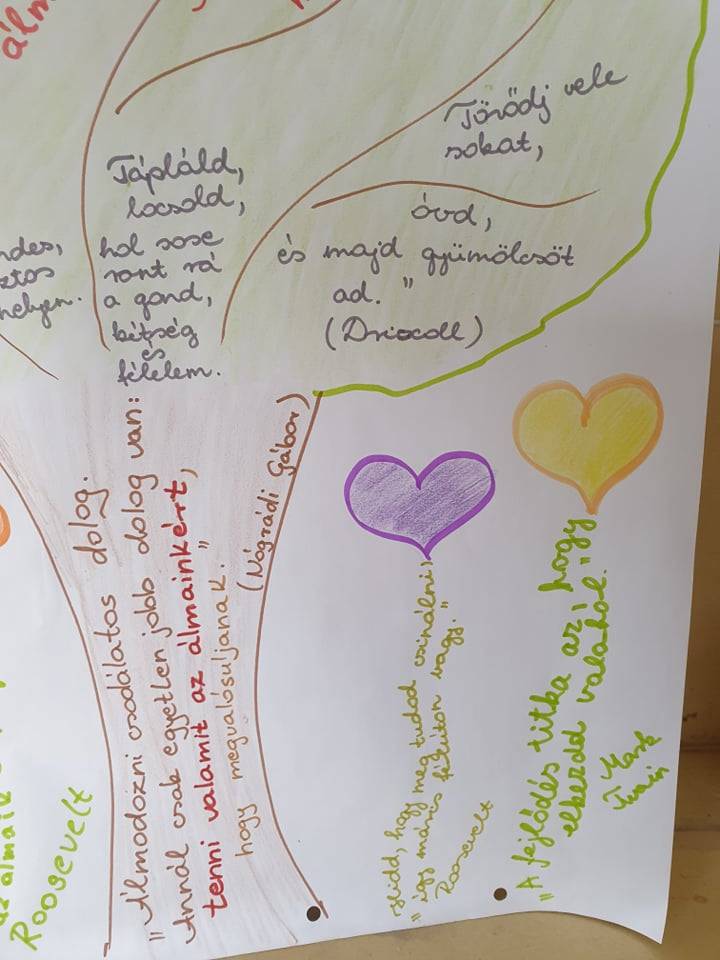 álm
ndes,
ztos
helyen.
Tápláld,
locsold,
hol sose
ront rá
a gond,
kétség
és
félelem.
Törődj vele
sokat,
óvd,
és majd gyümölcsöt
ad."
(Driscoll)
"Álmodozni csodálatos dolog.
Annál csak egyetlen jobb dolog van:
tenni valamit az álmainkért,
hogy megvalósuljanak."
(Nógrádi Gábor)
az álmaik
Roosevelt
Hidd, hagy meg tudod csinálni,
így máris félúton vagy."
Roosevelt
"A fejlődés titka az, hogy
elkezdd valahol."
Mark
Twain